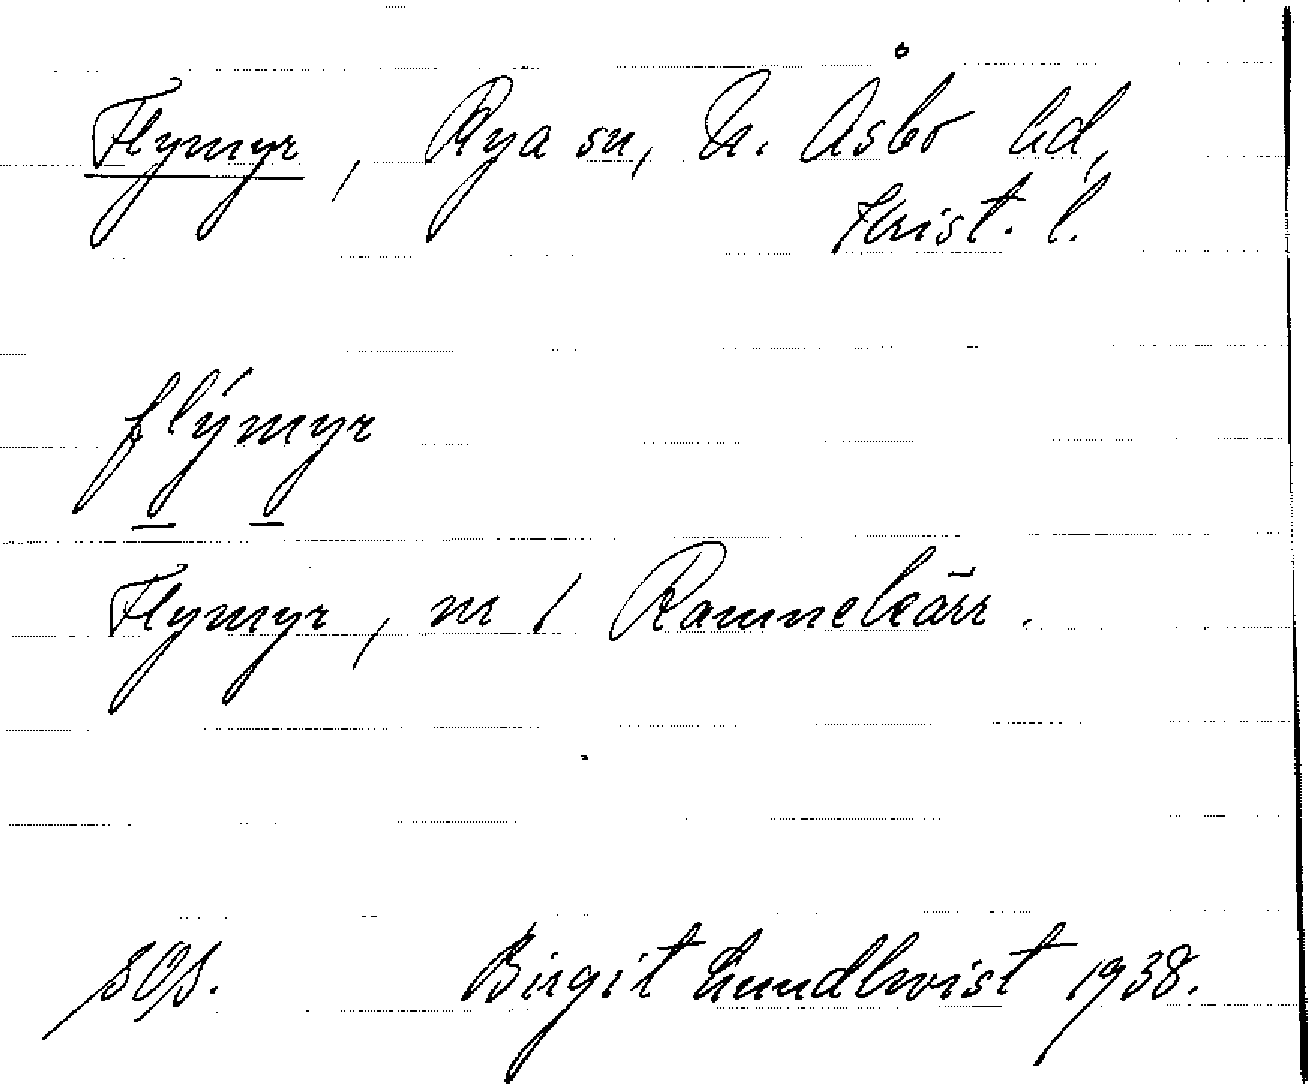 Flymyr, Rya sn, N. Åsbo hd,
Krist. l.
flýmyr
Flymyr, nr 1 Ramnekärr.
sgs. Birgit Lundkvist 1938.